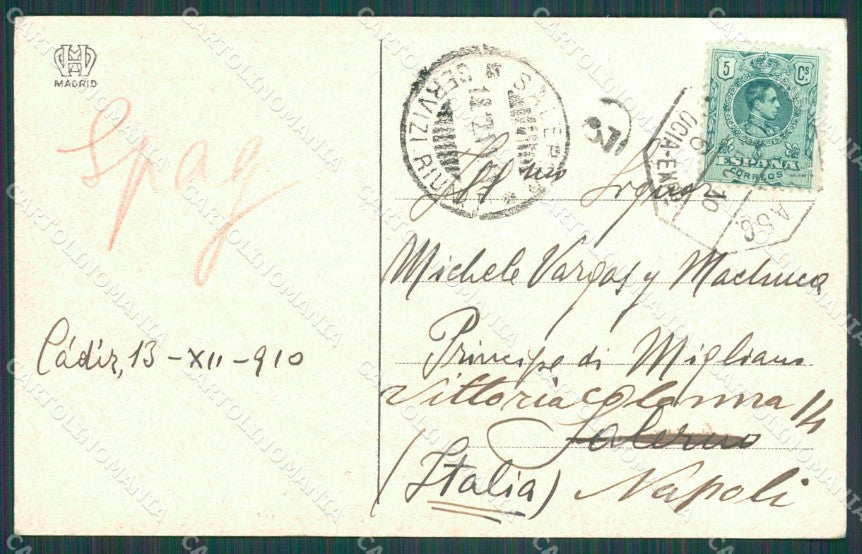 MADRID
Spag
Cádiz, 13-XII-910
SALERNO
18.12
SERVIZI RIUNITI
5 Cs
ESPAÑA
CORREOS
UCIA-EX
10
Illmo Signor
Michele Vargas y Machuca
Principe di Migliano
Vittoria Colonna 14
Salerno
(Italia) Napoli
CARTOLINOMANIA